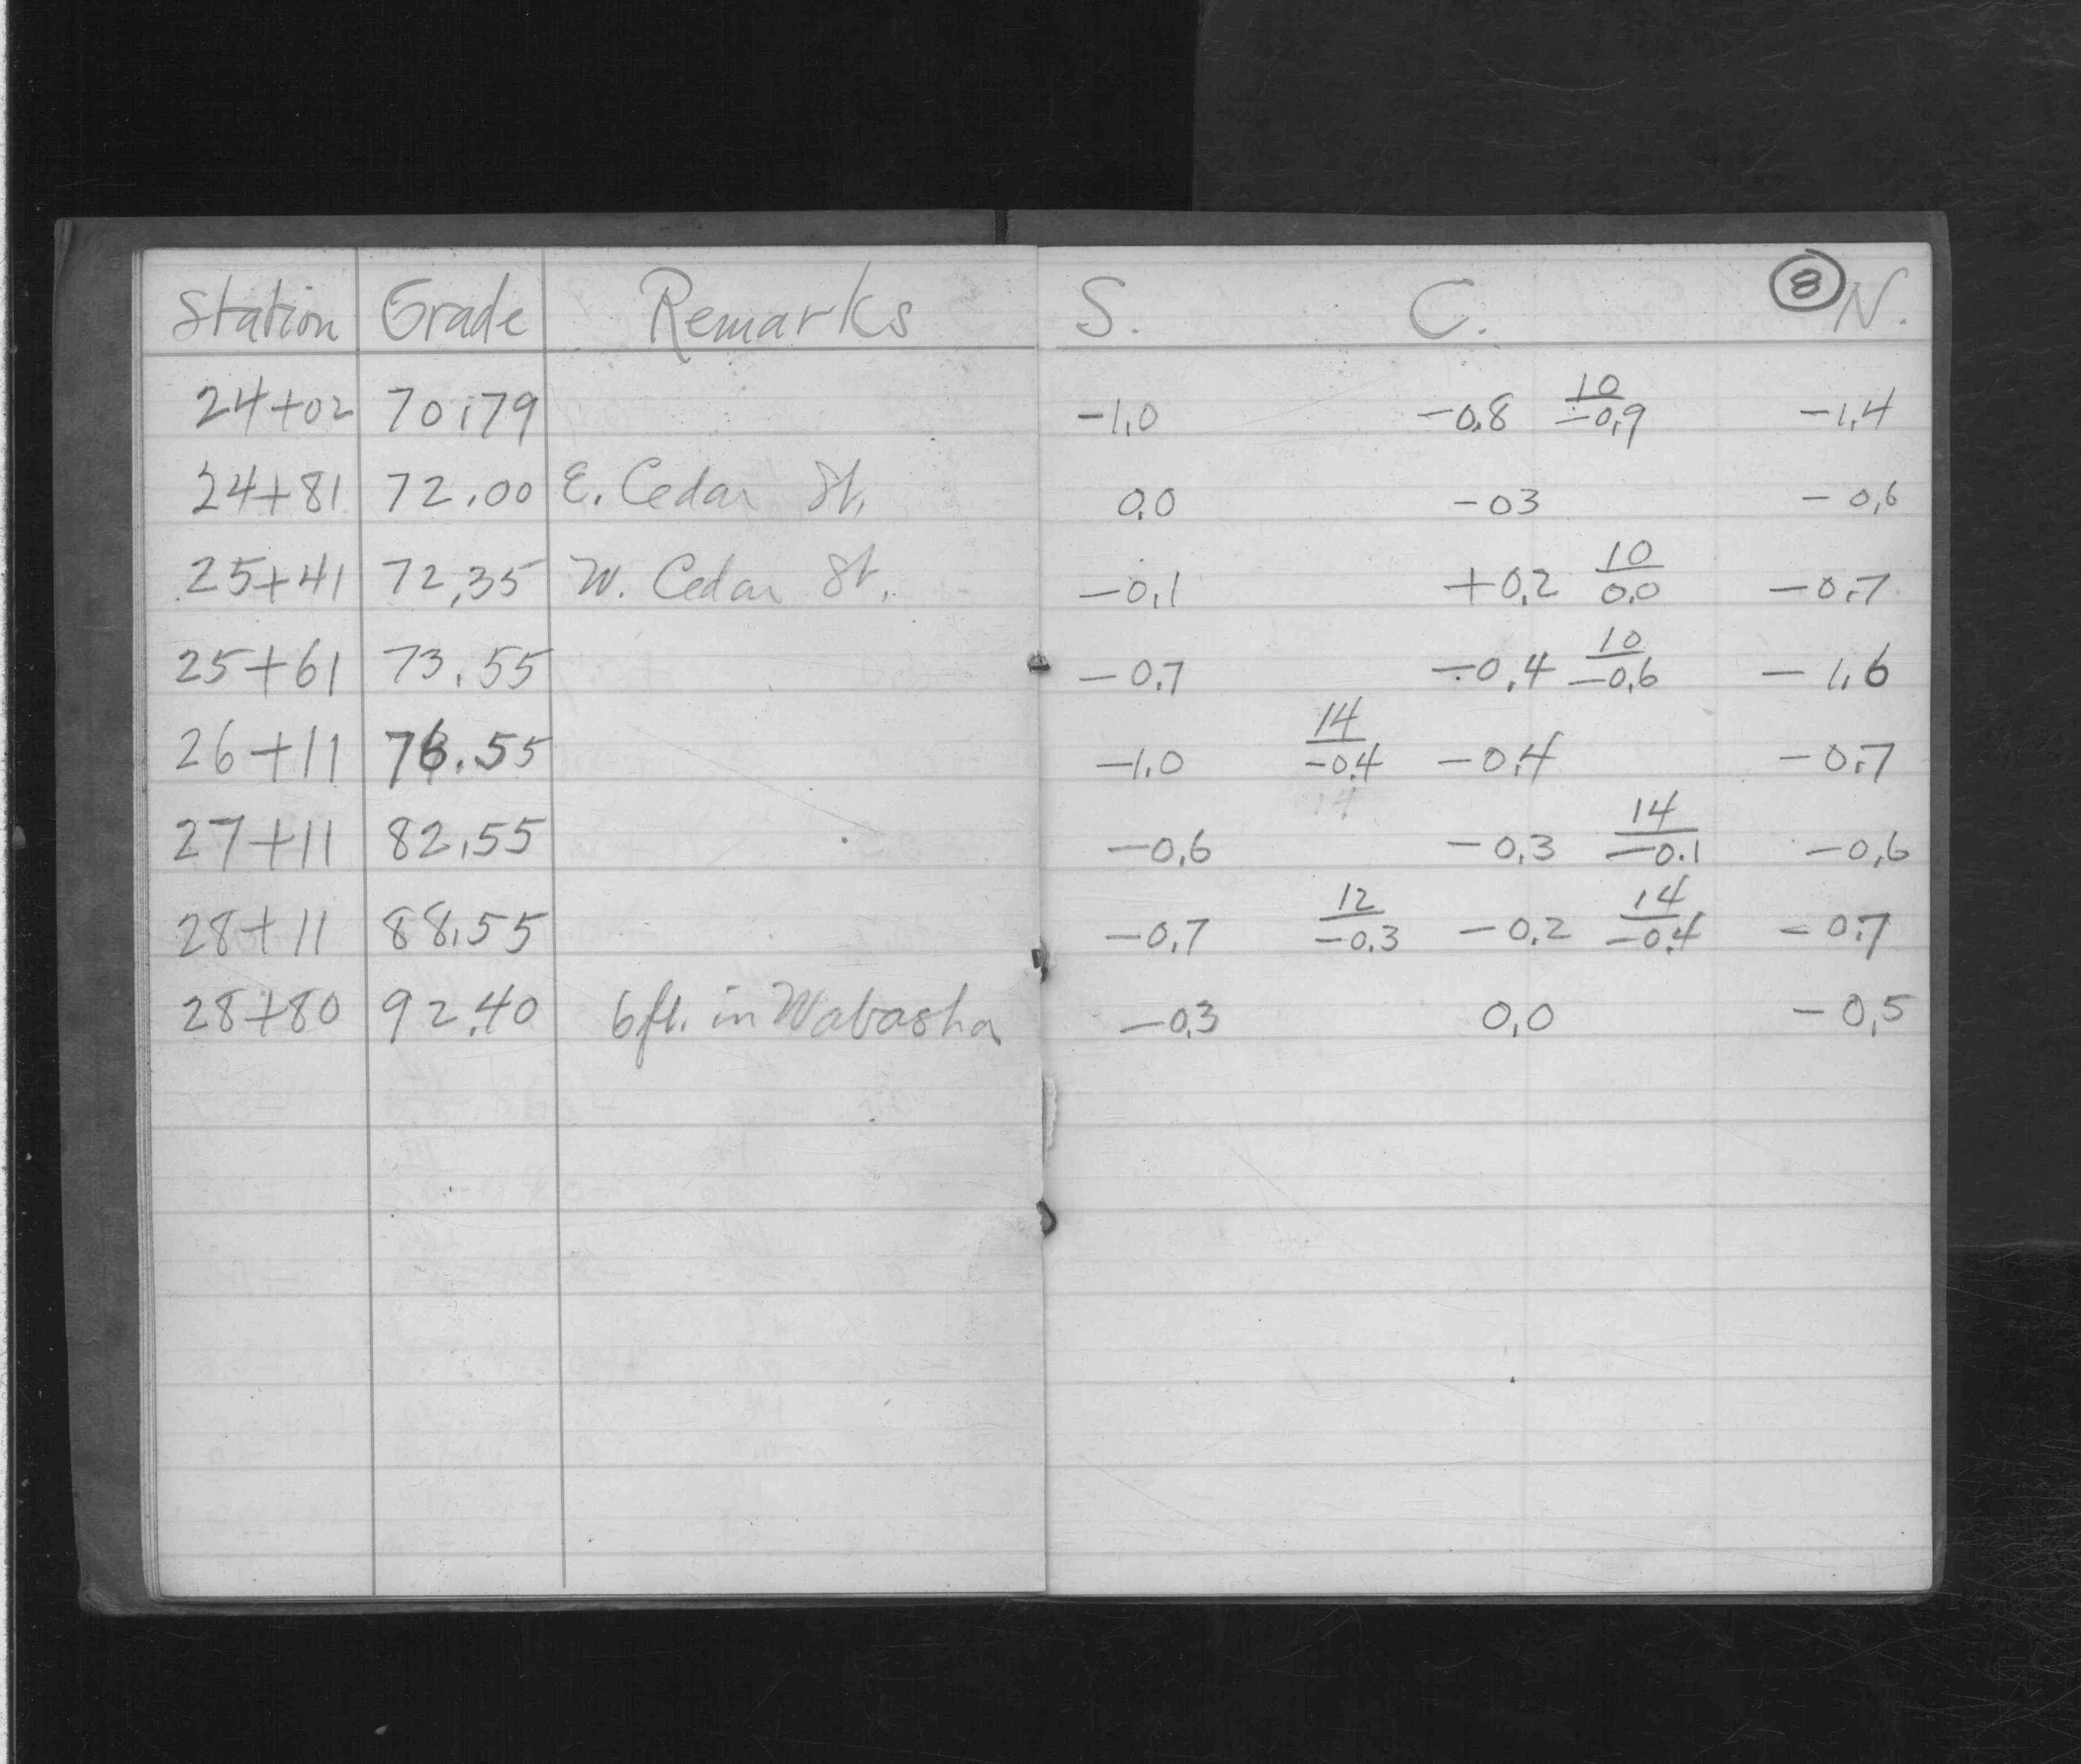 Station Grade Remarks S. C. 8 N.
24+02 70.79 -1.0 -0.8 10/-0.9 -1.4
24+81 72.00 E. Cedar St. 0.0 -03 -0.6
25+41 72.35 W. Cedar St. -0.1 +0.2 10/0.0 -0.7
25+61 73.55 -0.7 -0.4 10/-0.6 -1.6
26+11 76.55 -1.0 14/-0.4 -0.4 -0.7
27+11 82.55 -0.6 -0.3 14/-0.1 -0.6
28+11 88.55 -0.7 12/-0.3 -0.2 14/-0.4 -0.7
28+80 92.40 6 ft. in Wabasha -0.3 0.0 -0.5